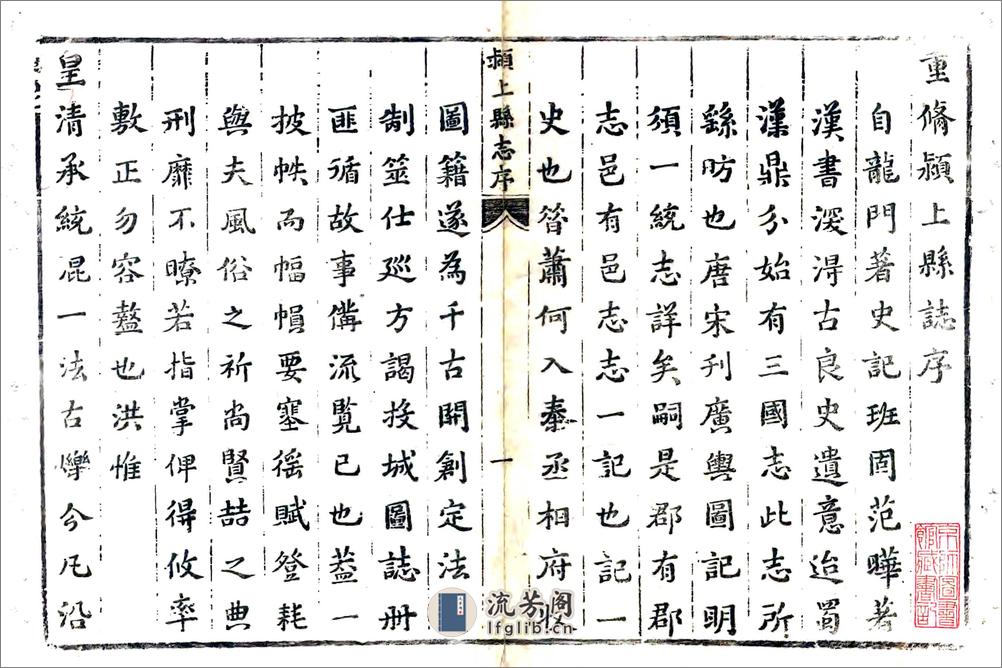 重脩潁上縣誌序
自龍門著史記班固范曄著
漢書深淂古良史遺意迨蜀
漢鼎分始有三國志此志所
繇昉也唐宋刊廣輿圖記明
須一統志詳矣嗣是郡有郡
志邑有邑志志一記也記一
史也昝蕭何入秦丞相府收
潁上縣志序
一
圖籍遂為千古開創定法
制筮仕巡方謁投城圖誌冊
匪循故事俻流覧已也葢一
披帙而幅幀要塞徭賦登耗
與夫風俗之祈尚賢喆之典
刑靡不瞭若指掌俾得攸率
敷正勿容盭也洪惟
皇清承統混一法古爍今凡沿
流芳阁
lfglib.cn